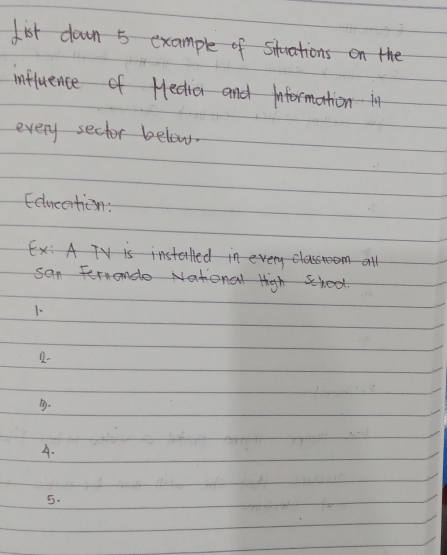 List down 5 example of Situations on the
influence of Media and Information in
every sector below.
Education:
Ex: A TV is installed in every classroom all
San Fernando National High School.
1.
2.
3.
4.
5.